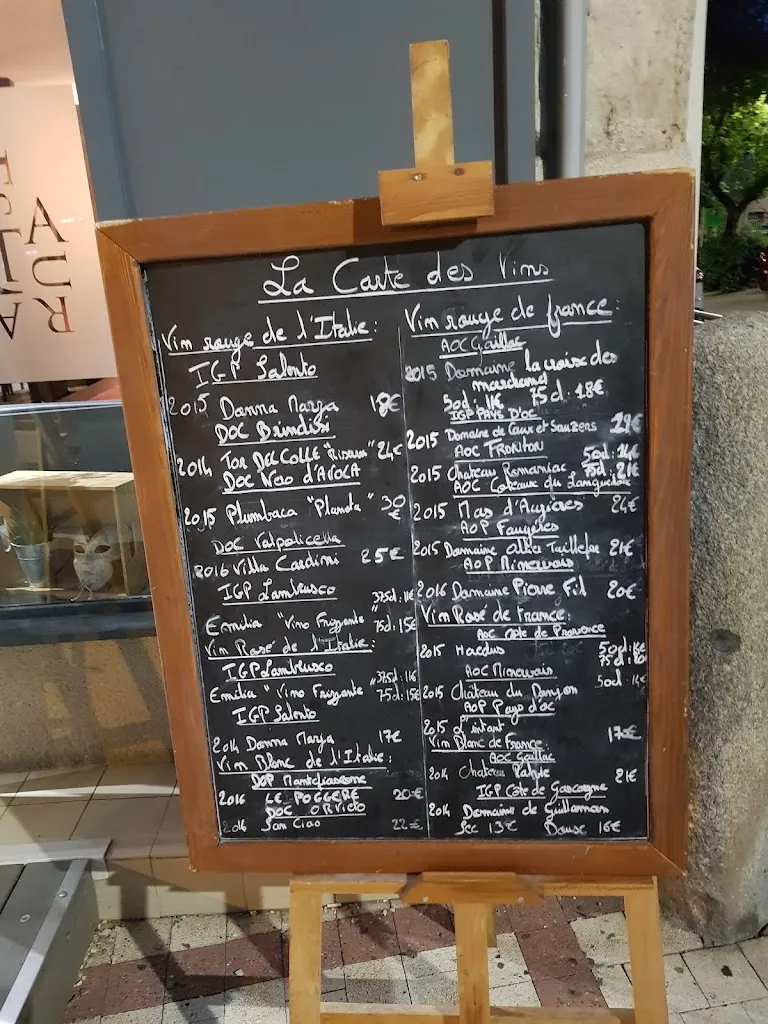 La Carte des Vins
Vin rouge de l'Italie:
IGP Salento
2015 Danna Marza 18€
DOC Brindisi
2014 Tor Del Colle "Riserva" 24€
DOC Nero d'Avola
2015 Plumbaca "Planeta" 30€
DOC Valpolicella
2016 Villa Cardini 25€
IGP Lambrusco
37.5cl: 11€
Emilia "Vino Frizzante" 75cl: 15€
Vin Rosé de l'Italie:
IGP Lambrusco
37.5cl: 11€
Emilia "Vino Frizzante" 75cl: 15€
IGP Salento
2014 Danna Marza 17€
Vin Blanc de l'Italie:
DOP Montefiascone
2016 LE POGGERE 20€
DOC ORVIETO
2016 San Ciao 22€
Vin rouge de france:
AOC Gaillac
2015 Domaine la croix des
marchand
50cl: 11€ 75cl: 18€
IGP PAYS D'OC
2015 Domaine de Caux et Sauzens
AOC FRONTON
2015 Chateau Romaniac 75cl: 21€
AOC Coteaux du Languedoc
2015 Mas d'Augières 24€
AOP Faugères
2015 Domaine 21€
AOP Minervois
2016 Domaine Pierre Fil 20€
Vin Rosé de France:
AOC Côte de Provence
2015
AOC Minervois
2015 Château du Donjon 50cl: 14€
AOP Pays d'oc
2015 L'instant 17€
Vin Blanc de France:
AOC Gaillac
2014 Chateau 21€
IGP Côte de Gascogne
2014 Domaine de Guillaman
Sec 13€ Doux 16€